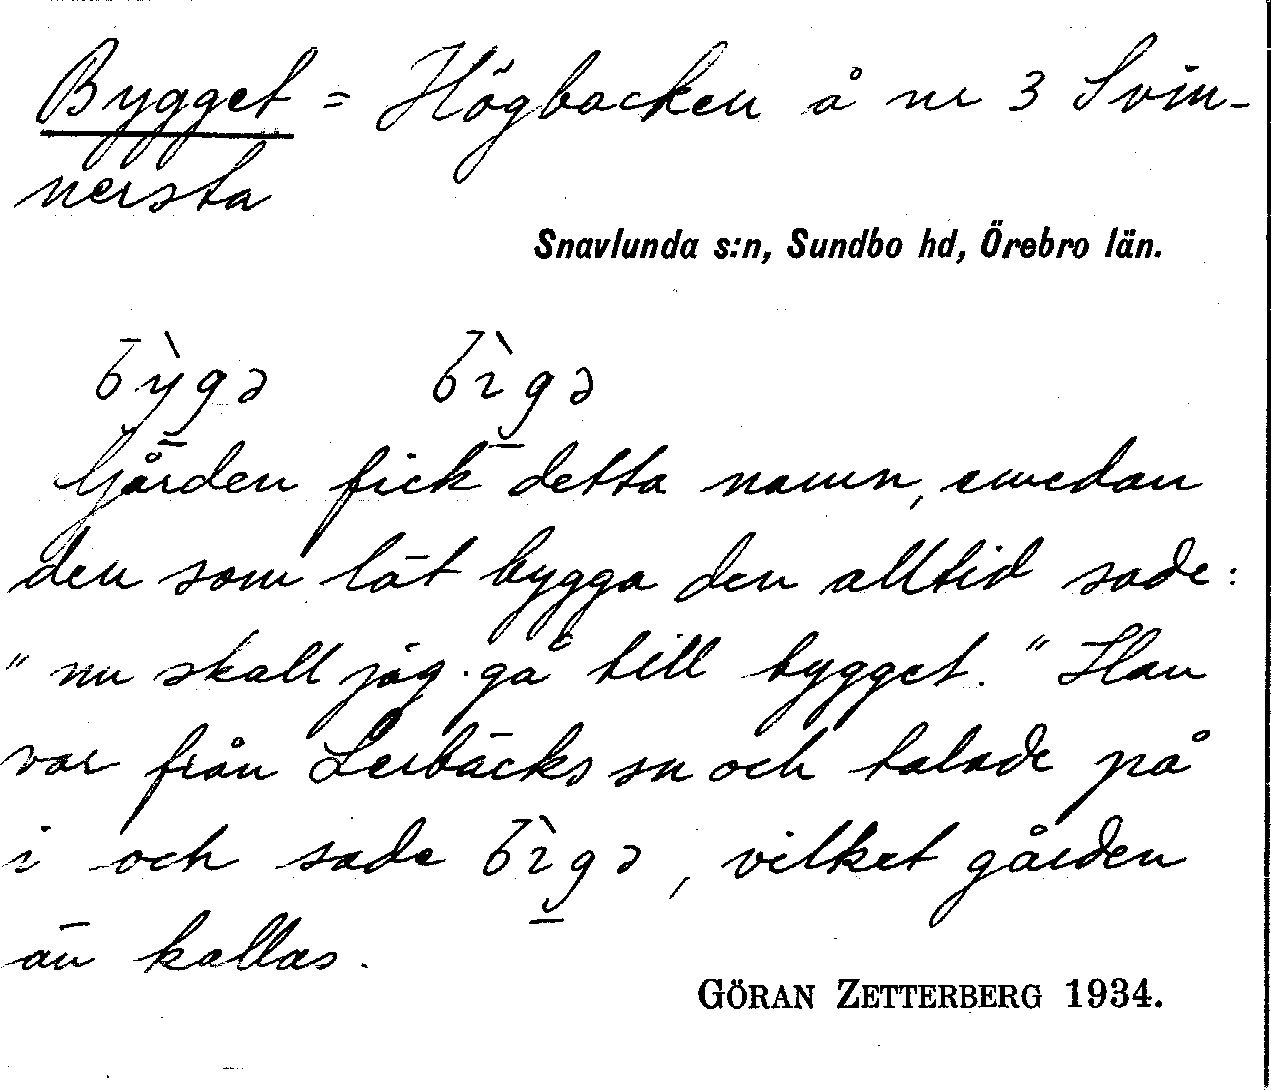 Bygget = Högbacken å nr 3 Svin-
nersta
Snavlunda s:n, Sundbo hd, Örebro län.
bỳgə bìgə
Gården fick detta namn, emedan
den som lät bygga den alltid sade:
"nu skall jag gå till bygget." Han
var från Lerbäcks sn och talade på
i och sade bìgə, vilket gården
än kallas.
GÖRAN ZETTERBERG 1934.